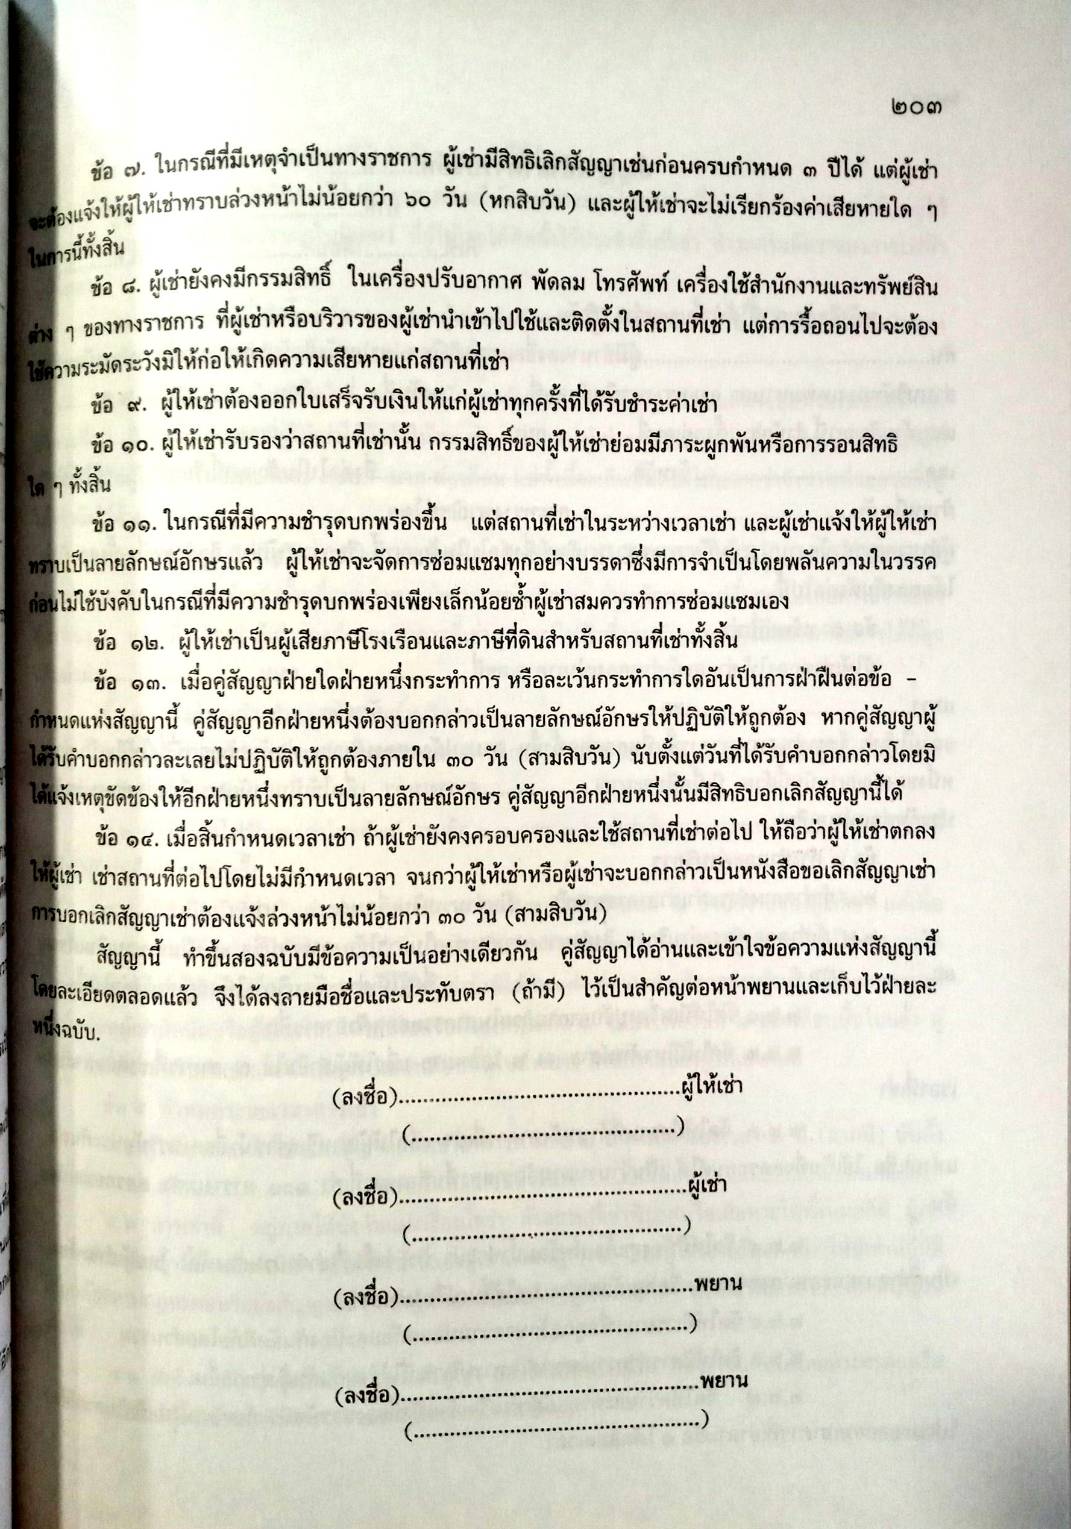 ๒๐๓
ข้อ ๗. ในกรณีที่มีเหตุจำเป็นทางราชการ ผู้เช่ามีสิทธิเลิกสัญญาเช่นก่อนครบกำหนด ๓ ปีได้ แต่ผู้เช่า
จะต้องแจ้งให้ผู้ให้เช่าทราบล่วงหน้าไม่น้อยกว่า ๖๐ วัน (หกสิบวัน) และผู้ให้เช่าจะไม่เรียกร้องค่าเสียหายใด ๆ
ในการนี้ทั้งสิ้น
ข้อ ๘. ผู้เช่ายังคงมีกรรมสิทธิ์ ในเครื่องปรับอากาศ พัดลม โทรศัพท์ เครื่องใช้สำนักงานและทรัพย์สิน
ต่าง ๆ ของทางราชการ ที่ผู้เช่าหรือบริวารของผู้เช่านำเข้าไปใช้และติดตั้งในสถานที่เช่า แต่การรื้อถอนไปจะต้อง
ใช้ความระมัดระวังมิให้ก่อให้เกิดความเสียหายแก่สถานที่เช่า
ข้อ ๙. ผู้ให้เช่าต้องออกใบเสร็จรับเงินให้แก่ผู้เช่าทุกครั้งที่ได้รับชำระค่าเช่า
ข้อ ๑๐. ผู้ให้เช่ารับรองว่าสถานที่เช่านั้น กรรมสิทธิ์ของผู้ให้เช่าย่อมมีภาระผูกพันหรือการรอนสิทธิ
ใด ๆ ทั้งสิ้น
ข้อ ๑๑. ในกรณีที่มีความชำรุดบกพร่องขึ้น แต่สถานที่เช่าในระหว่างเวลาเช่า และผู้เช่าแจ้งให้ผู้ให้เช่า
ทราบเป็นลายลักษณ์อักษรแล้ว ผู้ให้เช่าจะจัดการซ่อมแซมทุกอย่างบรรดาซึ่งมีการจำเป็นโดยพลันความในวรรค
ก่อนไม่ใช้บังคับในกรณีที่มีความชำรุดบกพร่องเพียงเล็กน้อยซ้ำผู้เช่าสมควรทำการซ่อมแซมเอง
ข้อ ๑๒. ผู้ให้เช่าเป็นผู้เสียภาษีโรงเรือนและภาษีที่ดินสำหรับสถานที่เช่าทั้งสิ้น
ข้อ ๑๓. เมื่อคู่สัญญาฝ่ายใดฝ่ายหนึ่งกระทำการ หรือละเว้นกระทำการใดอันเป็นการฝ่าฝืนต่อข้อ -
กำหนดแห่งสัญญานี้ คู่สัญญาอีกฝ่ายหนึ่งต้องบอกกล่าวเป็นลายลักษณ์อักษรให้ปฏิบัติให้ถูกต้อง หากคู่สัญญาผู้
ได้รับคำบอกกล่าวละเลยไม่ปฏิบัติให้ถูกต้องภายใน ๓๐ วัน (สามสิบวัน) นับตั้งแต่วันที่ได้รับคำบอกกล่าวโดยมิ
ได้แจ้งเหตุขัดข้องให้อีกฝ่ายหนึ่งทราบเป็นลายลักษณ์อักษร คู่สัญญาอีกฝ่ายหนึ่งนั้นมีสิทธิบอกเลิกสัญญานี้ได้
ข้อ ๑๔. เมื่อสิ้นกำหนดเวลาเช่า ถ้าผู้เช่ายังคงครอบครองและใช้สถานที่เช่าต่อไป ให้ถือว่าผู้ให้เช่าตกลง
ให้ผู้เช่า เช่าสถานที่ต่อไปโดยไม่มีกำหนดเวลา จนกว่าผู้ให้เช่าหรือผู้เช่าจะบอกกล่าวเป็นหนังสือขอเลิกสัญญาเช่า
การบอกเลิกสัญญาเช่าต้องแจ้งล่วงหน้าไม่น้อยกว่า ๓๐ วัน (สามสิบวัน)
สัญญานี้ ทำขึ้นสองฉบับมีข้อความเป็นอย่างเดียวกัน คู่สัญญาได้อ่านและเข้าใจข้อความแห่งสัญญานี้
โดยละเอียดตลอดแล้ว จึงได้ลงลายมือชื่อและประทับตรา (ถ้ามี) ไว้เป็นสำคัญต่อหน้าพยานและเก็บไว้ฝ่ายละ
หนึ่งฉบับ.
(ลงชื่อ)..............................................ผู้ให้เช่า
(...........................................)
(ลงชื่อ)...............................................ผู้เช่า
(............................................)
(ลงชื่อ)................................................พยาน
(.............................................)
(ลงชื่อ).................................................พยาน
(...............................................)